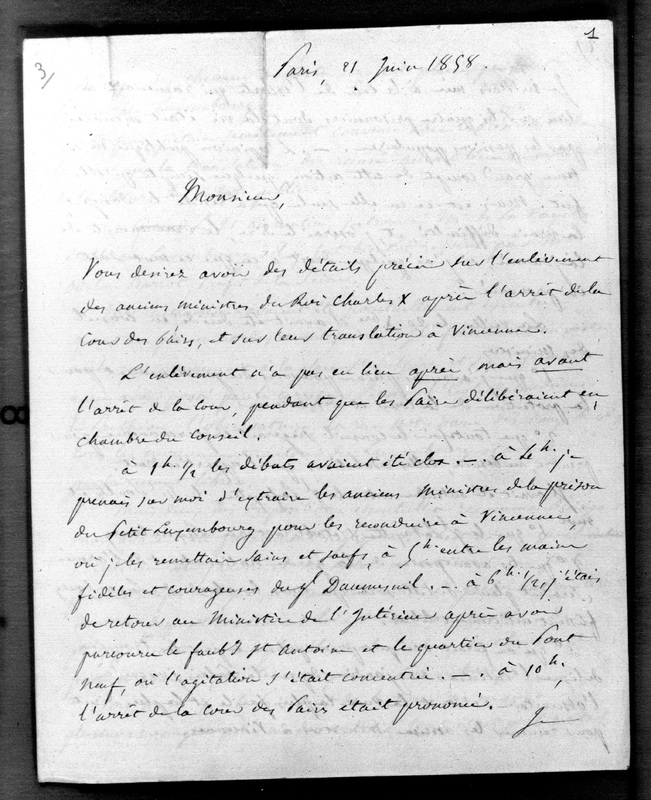 1
3/
Paris, 21 Juin 1858.
Monsieur,
Vous desirez avoir des détails précis sur l'enlèvement
des anciens ministres du Roi Charles X après l'arrêt de la
Cour des Pairs, et sur leur translation à Vincennes.
L'enlèvement n'a pas eu lieu après mais avant
l'arrêt de la Cour, pendant que les Pairs délibéraient en
chambre du Conseil.
à 1h. 1/2 les débats avaient été clos. — . à 2 h. je
prenais sur moi d'extraire les anciens Ministres de la prison
du Petit Luxembourg pour les reconduire à Vincennes,
où je les remettais sains et saufs, à 5h entre les mains
fidèles et courageuses du gl Daumesnil. — . à 6h. 1/2, j'étais
de retour au Ministère de l'Intérieur après avoir
parcouru le faubg St Antoine et le quartier du Pont
neuf, où l'agitation s'était concentrée. — . à 10h.,
l'arrêt de la cour des Pairs était prononcé.